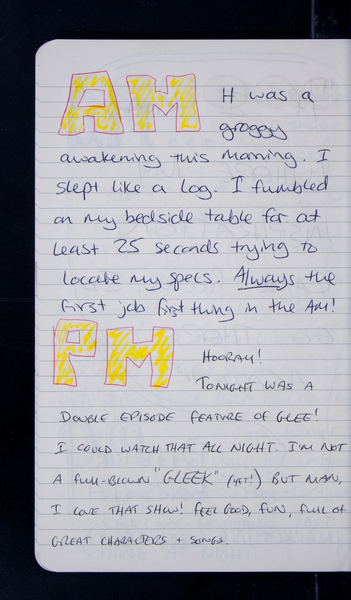 AM It was a
groggy
awakening this morning. I
slept like a log. I fumbled
on my bedside table for at
least 25 seconds trying to
locate my specs. Always the
first job first thing in the AM!
PM HOORAY!
TONIGHT WAS A
DOUBLE EPISODE FEATURE OF GLEE!
I COULD WATCH THAT ALL NIGHT. I'M NOT
A FULL-BLOWN "GLEEK" (YET!) BUT MAN,
I LOVE THAT SHOW! FEEL GOOD, FUN, FULL OF
GREAT CHARACTERS + SONGS.